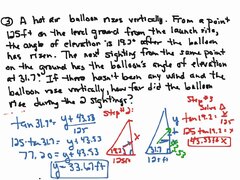 ③ A hot air balloon rises vertically. From a point
125ft on the level ground from the launch site,
the angle of elevation is 19.2° after the balloon
has risen. The next sighting from the same point
on the ground has the balloon's angle of elevation
at 31.7°. If there hasn't been any wind and the
balloon rose vertically, how far did the balloon
rise during the 2 sightings?
Step #2:
Step #1
Solve
tan 31.7° = y + 43.53
125
125·tan 31.7 = y + 43.53
77.20 = y + 43.53
y = 33.67 ft
19.2°
125ft
31.7
tan 19.2 =
125 tan 19.2 =
43.53 ft =